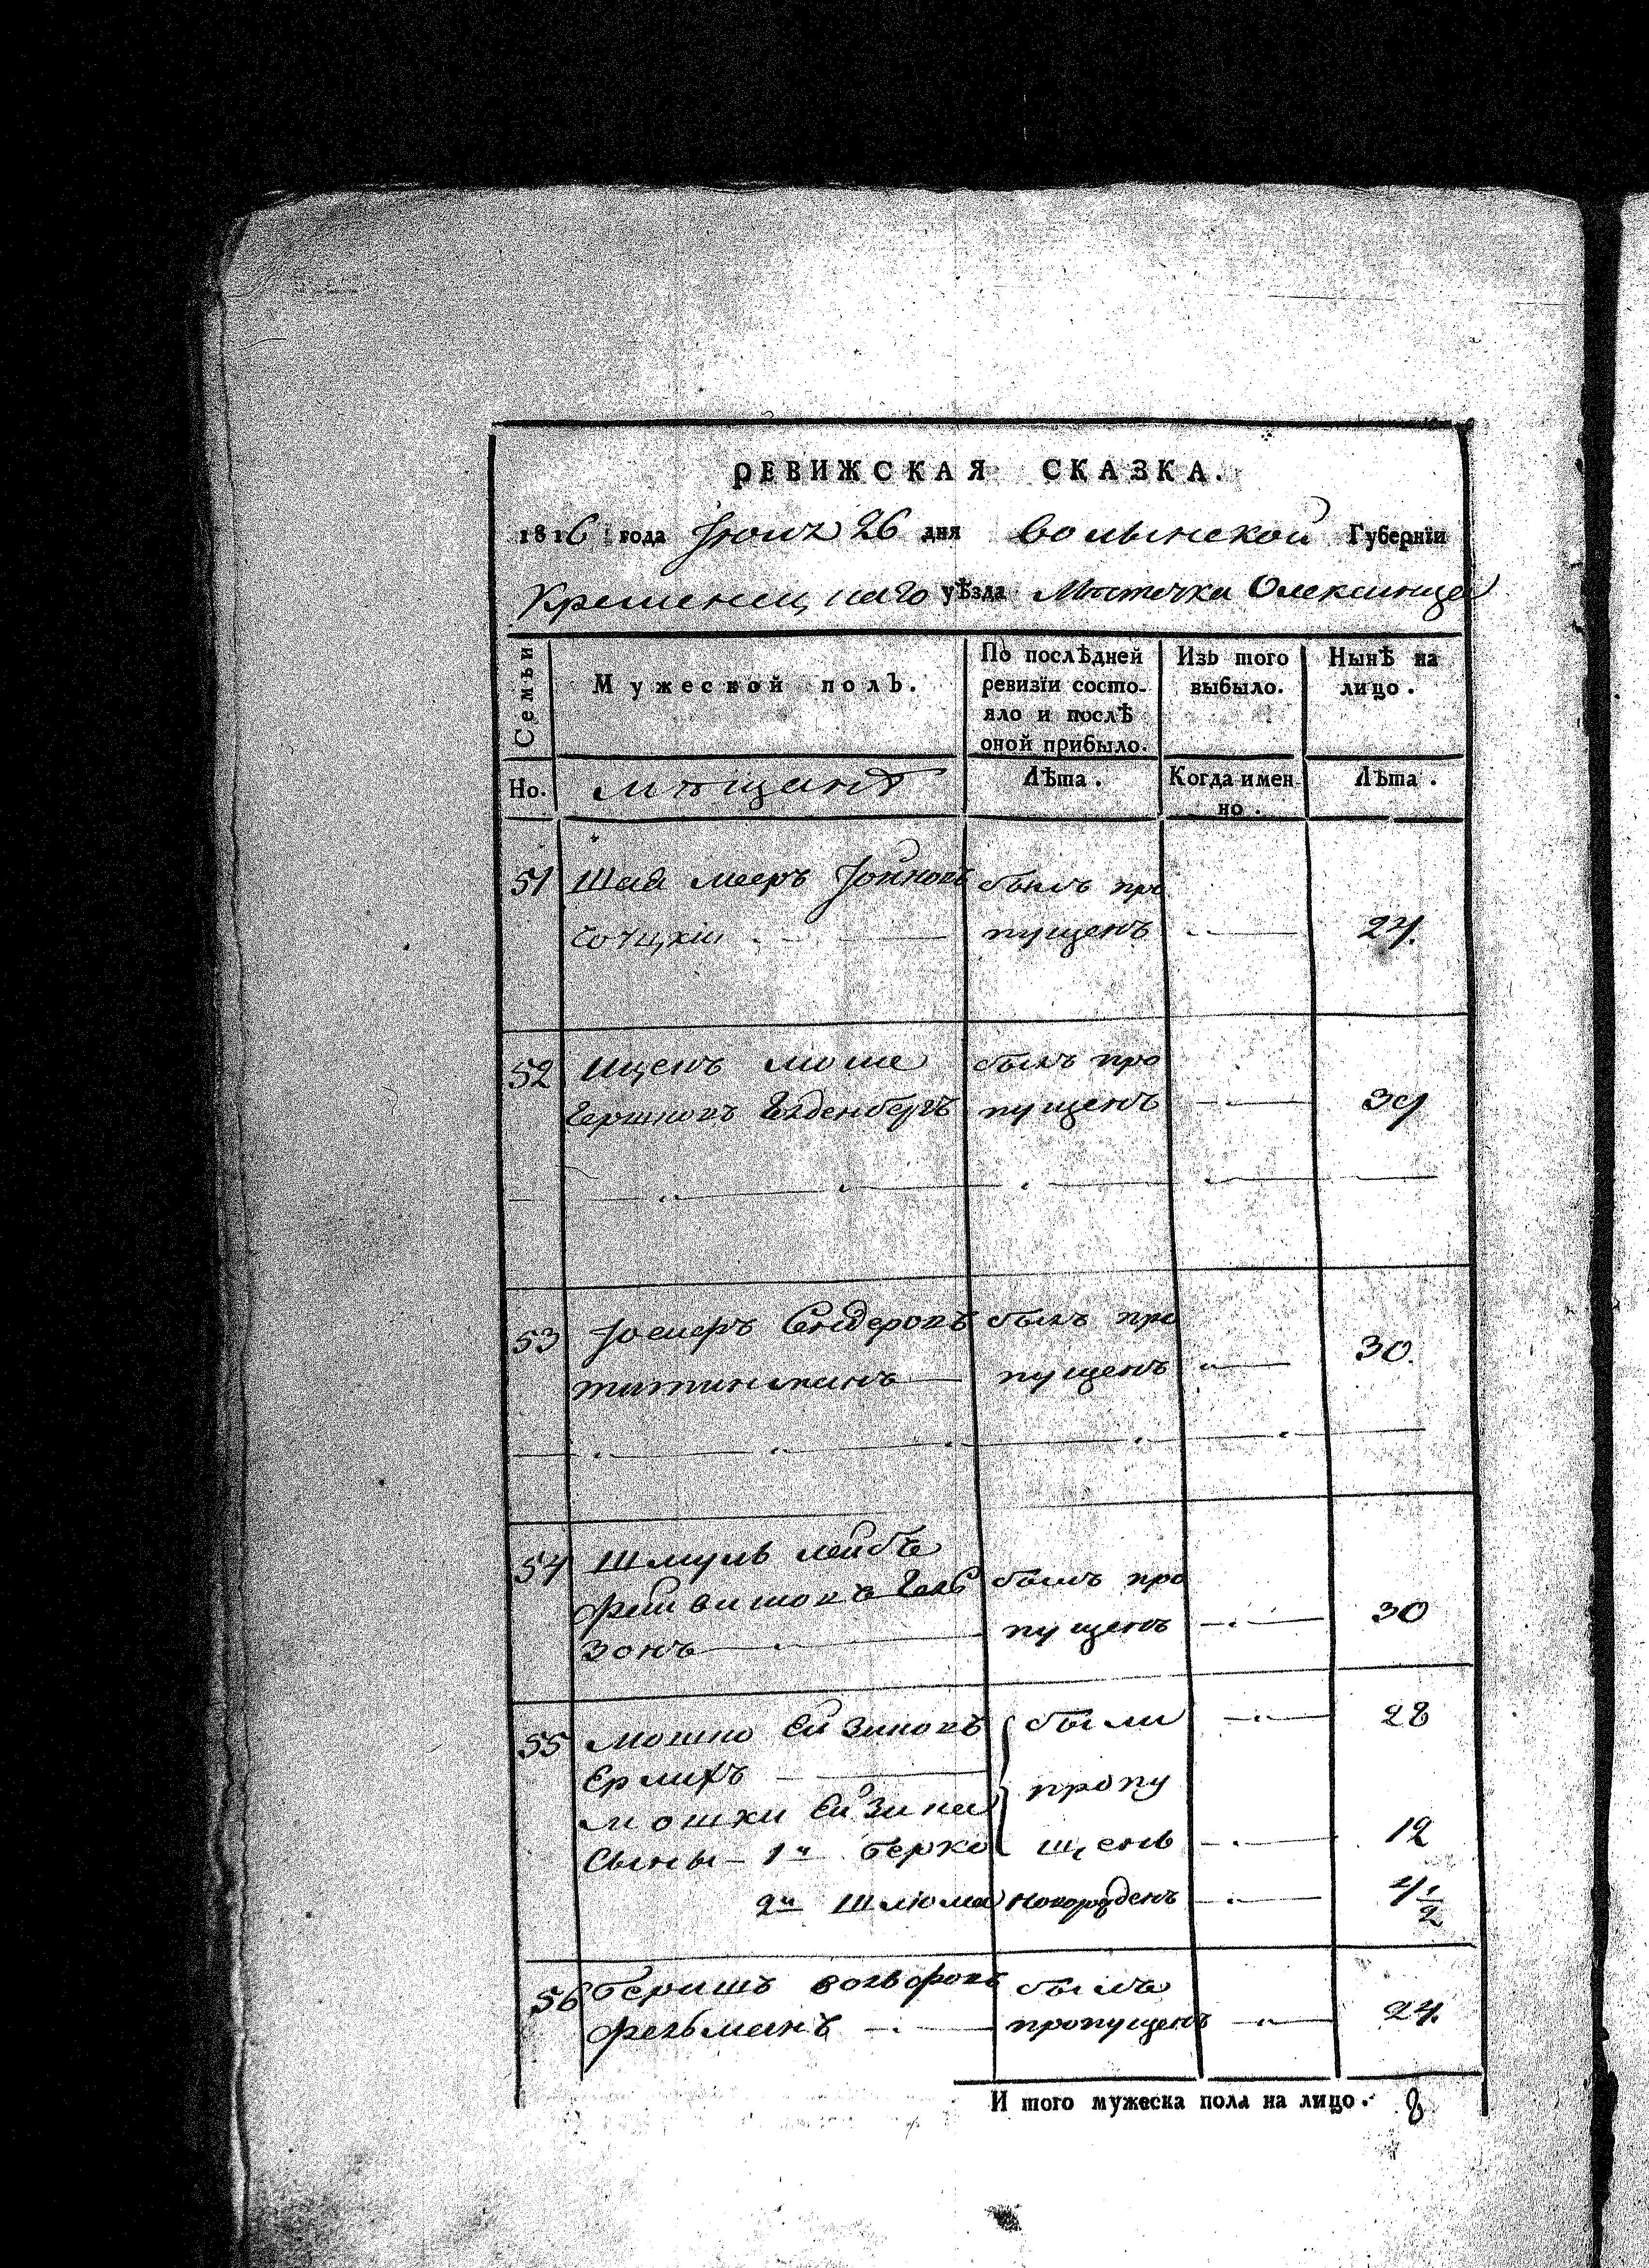 РЕВИЖСКАЯ СКАЗКА.
1816 года Июнѧ 26 дня Волынской Губернїи
Кременецкаго уѣзда Мѣстечка Олексинца
Семьи
Мужеской полъ.
По послѣдней ревизїи состо-
яло и послѣ
оной прибыло.
Изъ того
выбыло.
Нынѣ на
лицо.
Но.
мѣщанѣ
Лѣта.
Когда имен-
но.
Лѣта.
51 Шая Мееръ Іойновъ былъ про
пущенъ 24.
52 Ицекъ Моше былъ про
Гершковъ Голденбергъ пущенъ 39
53 Іосифъ Сендеровъ былъ про
пущенъ 30.
54 Шмуль Лейбъ
Фейвишовъ Гель былъ про
зонъ пущенъ 30
55 Мошко Ейзиковъ были 28
Ерлихъ пропу
Мошки Ейзика
Сыны 1й Берко щены 12
2й Шлюма новорожденъ 4 1/2
56 Беришъ Вольфовъ былъ
Фельманъ пропущенъ 24.
И того мужеска пола на лицо. 8